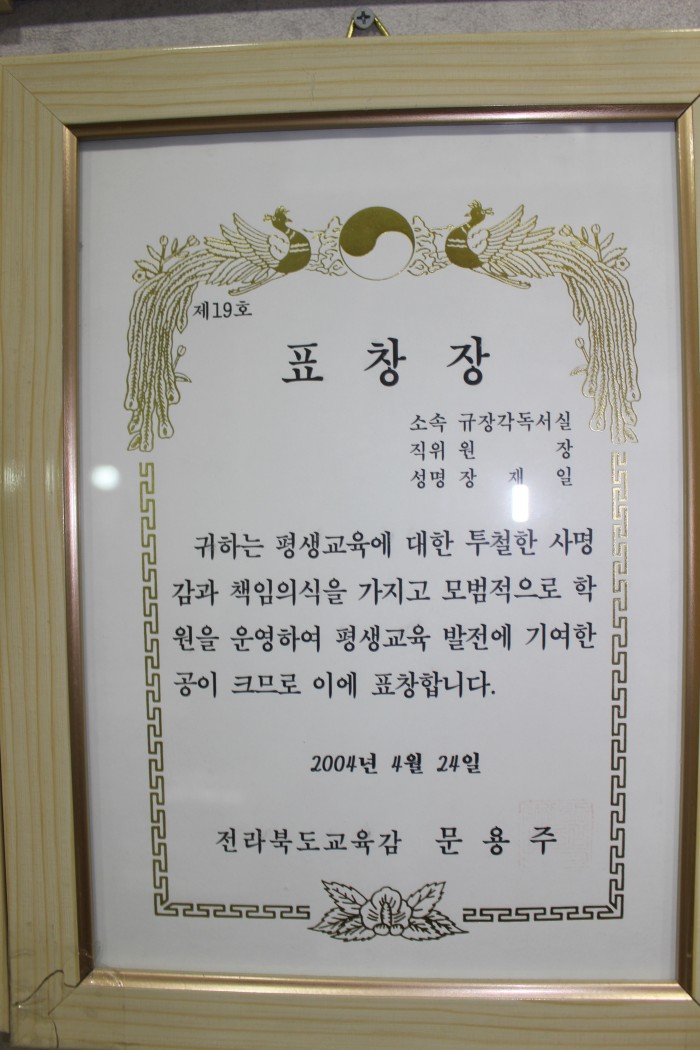 제19호
표 창 장
소속 규장각독서실
직위 원 장
성명 장 재 일
귀하는 평생교육에 대한 투철한 사명
감과 책임의식을 가지고 모범적으로 학
원을 운영하여 평생교육 발전에 기여한
공이 크므로 이에 표창합니다.
2004년 4월 24일
전라북도교육감 문 용 주